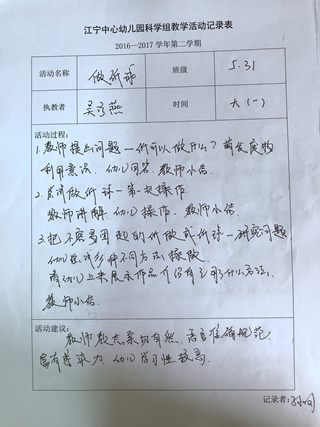 江宁中心幼儿园科学组教学活动记录表
2016—2017 学年第二学期
活动名称 做纸球 班级 5.31
执教者 吴 燕 时间 大(一)
活动过程:
1.教师提出问题—纸可以做什么?萌发废物
利用意识. 幼儿回答. 教师小结.
2.尝试做纸球—第一次操作.
教师讲解. 幼儿操作. 教师小结.
3.把不容易团起的纸做成纸球—研究问题
幼儿尝试多种不同方法操做.
请幼儿上来展示作品介绍有了用什么方法.
教师小结.
活动建议:
教师教态亲切自然、语言准确规范.
富有感染力. 幼儿学习性极高.
记录者: